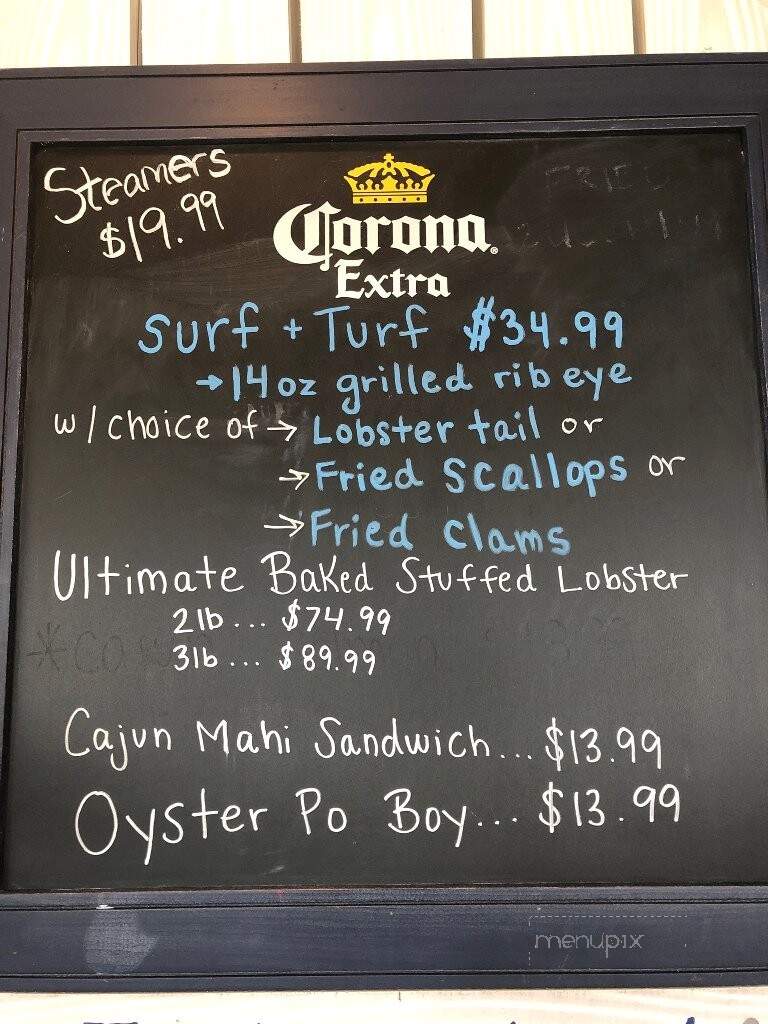 Steamers
$19.99
Corona
Extra
FRIED
Surf + Turf $34.99
→14oz grilled rib eye
w/choice of → Lobster tail or
→ Fried Scallops or
→ Fried Clams
Ultimate Baked Stuffed Lobster
2lb... $74.99
3lb... $89.99
Cajun Mahi Sandwich... $13.99
Oyster Po Boy... $13.99
menupix